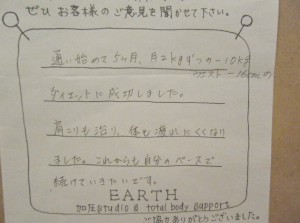 ぜひ お客様のご意見を聞かせて下さい。
通い始めて5ヶ月、月2kgずつの-10kg
ウエスト-16cmの
ダイエットに成功しました。
肩こりも治り、体も疲れにくくなり
ました。これからも自分のペースで
続けていきたいです。
EARTH
加圧studio & total body support
ご協力ありがとうございました。